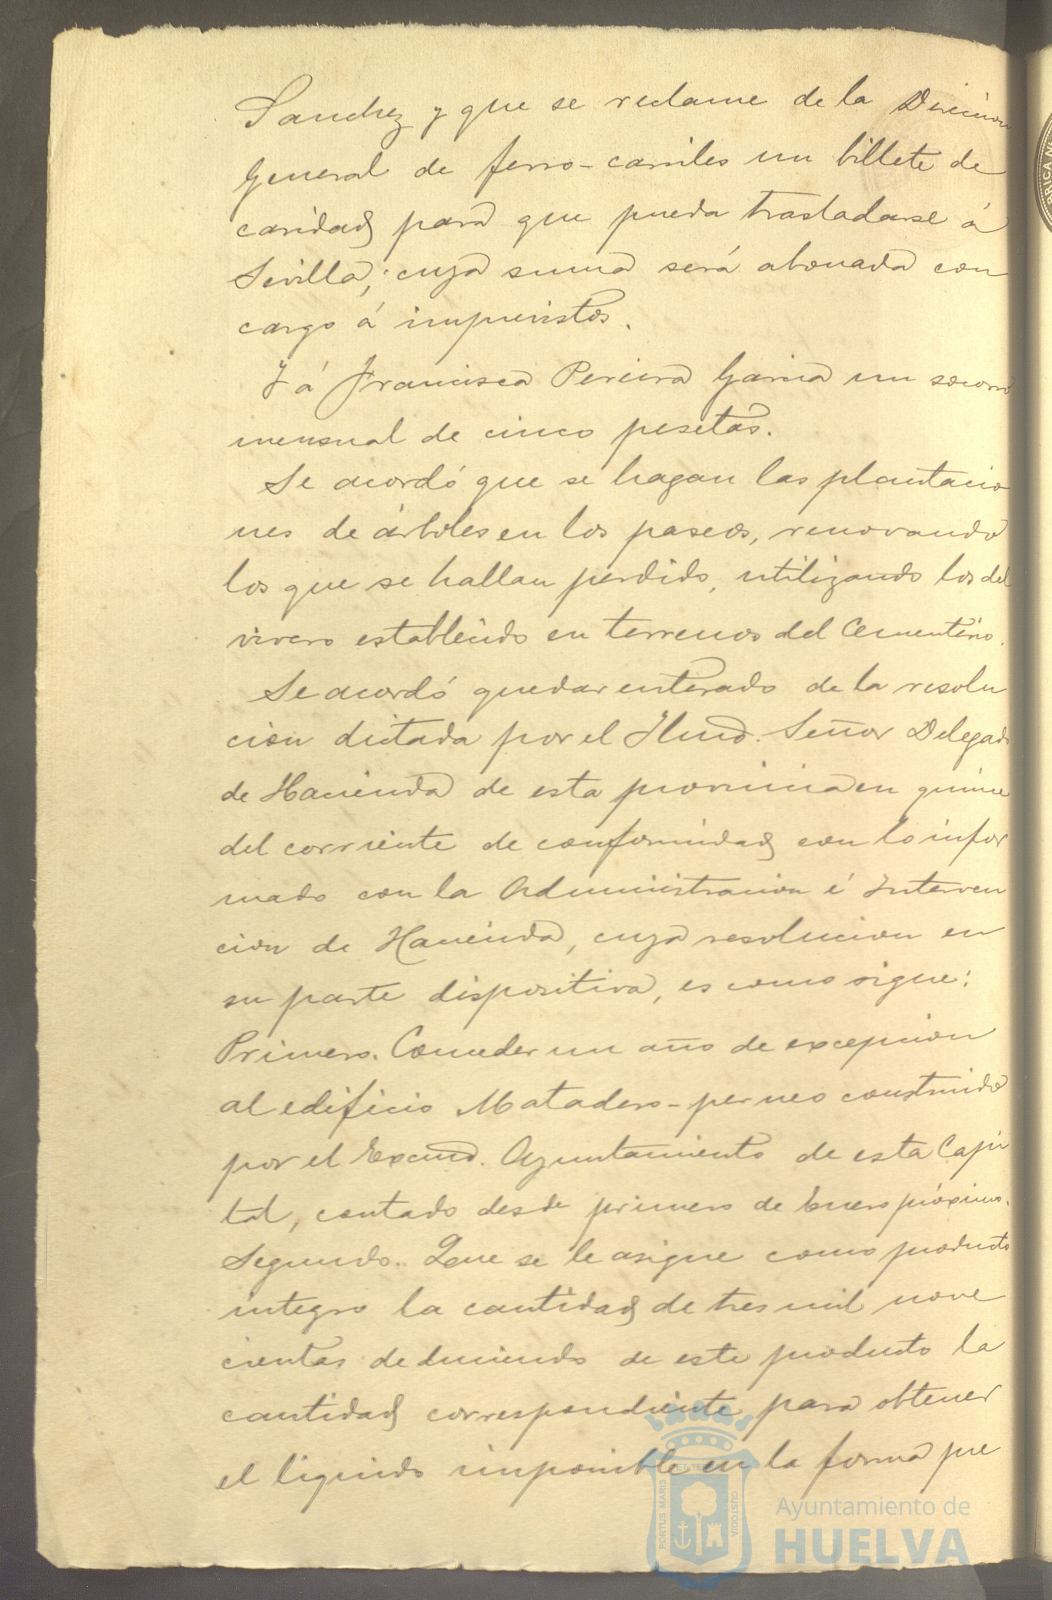 Sanchez y que se reclame de la Direccion
General de ferro-carriles un billete de
caridad para que pueda trasladarse á
Sevilla, cuya suma será abonada con
cargo á imprevistos.
Y á Francisca Pereira Garcia un socorro
mensual de cinco pesetas.
Se acordó que se hagan las plantacio
nes de árboles en los paseos, renovando
los que se hallan perdido, utilizando los del
vivero establecido en terrenos del Cementerio.
Se acordó quedar enterado de la resolu
cion dictada por el Ilmo. Señor Delegado
de Hacienda de esta provincia en quince
del corriente de conformidad con lo infor
mado con la Administracion é Interven
cion de Hacienda, cuya resolucion en
su parte dispositiva, es como sigue:
Primero. Conceder un año de excepcion
al edificio Matadero-perneo construido
por el Excmo. Ayuntamiento de esta Capi
tal, contado desde primero de Enero próximo.
Segundo. Que se le asigne como producto
integro la cantidad de tres mil nove
cientas deduciendo de este producto la
cantidad correspondiente para obtener
el liquido imponible en la forma pre
PORTUS MARIS ET TERRÆ CUSTODIA
Ayuntamiento de
HUELVA